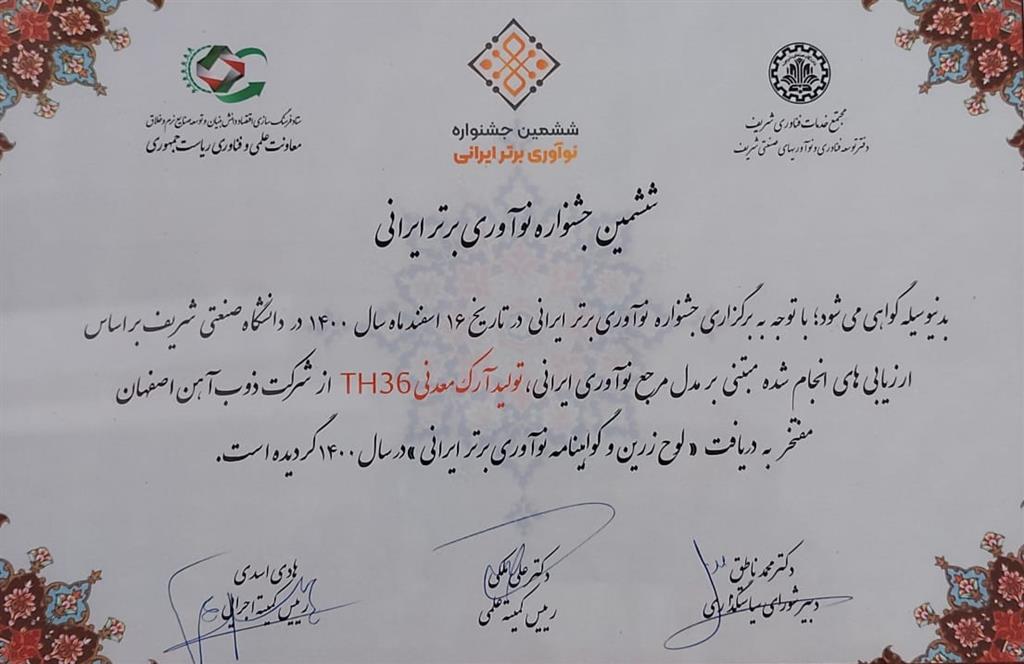 مجتمع خدمات فناوری شریف
دفتر توسعه فناوری و نوآوریهای صنعتی شریف
ششمین جشنواره
نوآوری برتر ایرانی
ستاد فرهنگ سازی اقتصاد دانش بنیان و توسعه صنایع نرم و خلاق
معاونت علمی و فناوری ریاست جمهوری
ششمین جشنواره نوآوری برتر ایرانی
بدینوسیله گواهی می شود؛ با توجه به برگزاری جشنواره نوآوری برتر ایرانی در تاریخ ۱۶ اسفند ماه سال ۱۴۰۰ در دانشگاه صنعتی شریف بر اساس
ارزیابی های انجام شده مبتنی بر مدل مرجع نوآوری ایرانی، تولید آرک معدنی TH36 از شرکت ذوب آهن اصفهان
مفتخر به دریافت «لوح زرین و گواهینامه نوآوری برتر ایرانی» در سال ۱۴۰۰ گردیده است.
دکتر محمد ناطق
دبیر شورای سیاستگذاری
دکتر علی ملکی
رییس کمیته علمی
هادی اسدی
رییس کمیته اجرایی